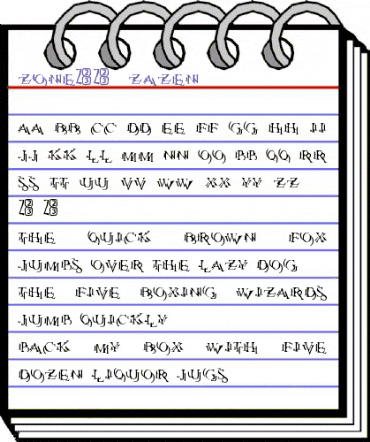 ZONE2323 ZAZEN
AA BB CC DD EE FF GG HH II
JJ KK LL MM NN OO PP QQ RR
SS TT UU VV WW XX YY ZZ
23 23
THE QUICK BROWN FOX
JUMPS OVER THE LAZY DOG
THE FIVE BOXING WIZARDS
JUMP QUICKLY
PACK MY BOX WITH FIVE
DOZEN LIQUOR JUGS